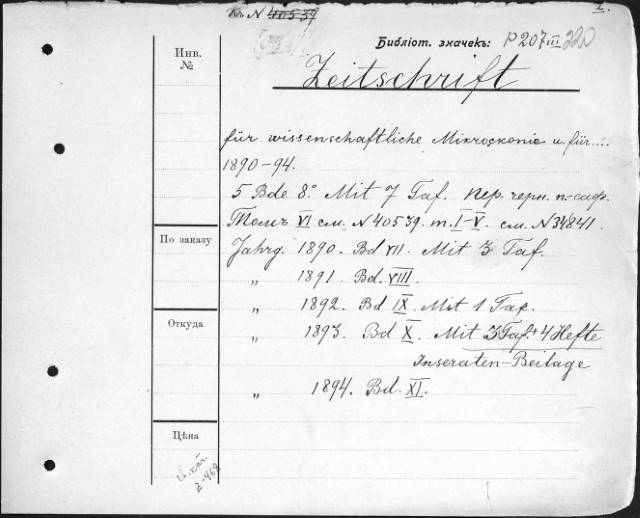 К. N 40539
2.
Библіот. значекъ: P207 III 220
Инв.
№
Zeitschrift
für wissenschaftliche Mikroskopie u für...
1890-94.
5 Bde 8°. Mit 7 Taf. Пер. черн. п.-сафр.
Томъ VI см. N 40539. т. I-V. см. N 34841.
По заказу
Jahrg. 1890. Bd VII. Mit 3 Taf.
„ 1891. Bd. VIII.
„ 1892. Bd IX. Mit 1 Taf.
Откуда
„ 1893. Bd X. Mit 3 Taf. + 4 Hefte
Inseraten-Beilage
„ 1894. Bd. XI.
Цѣна